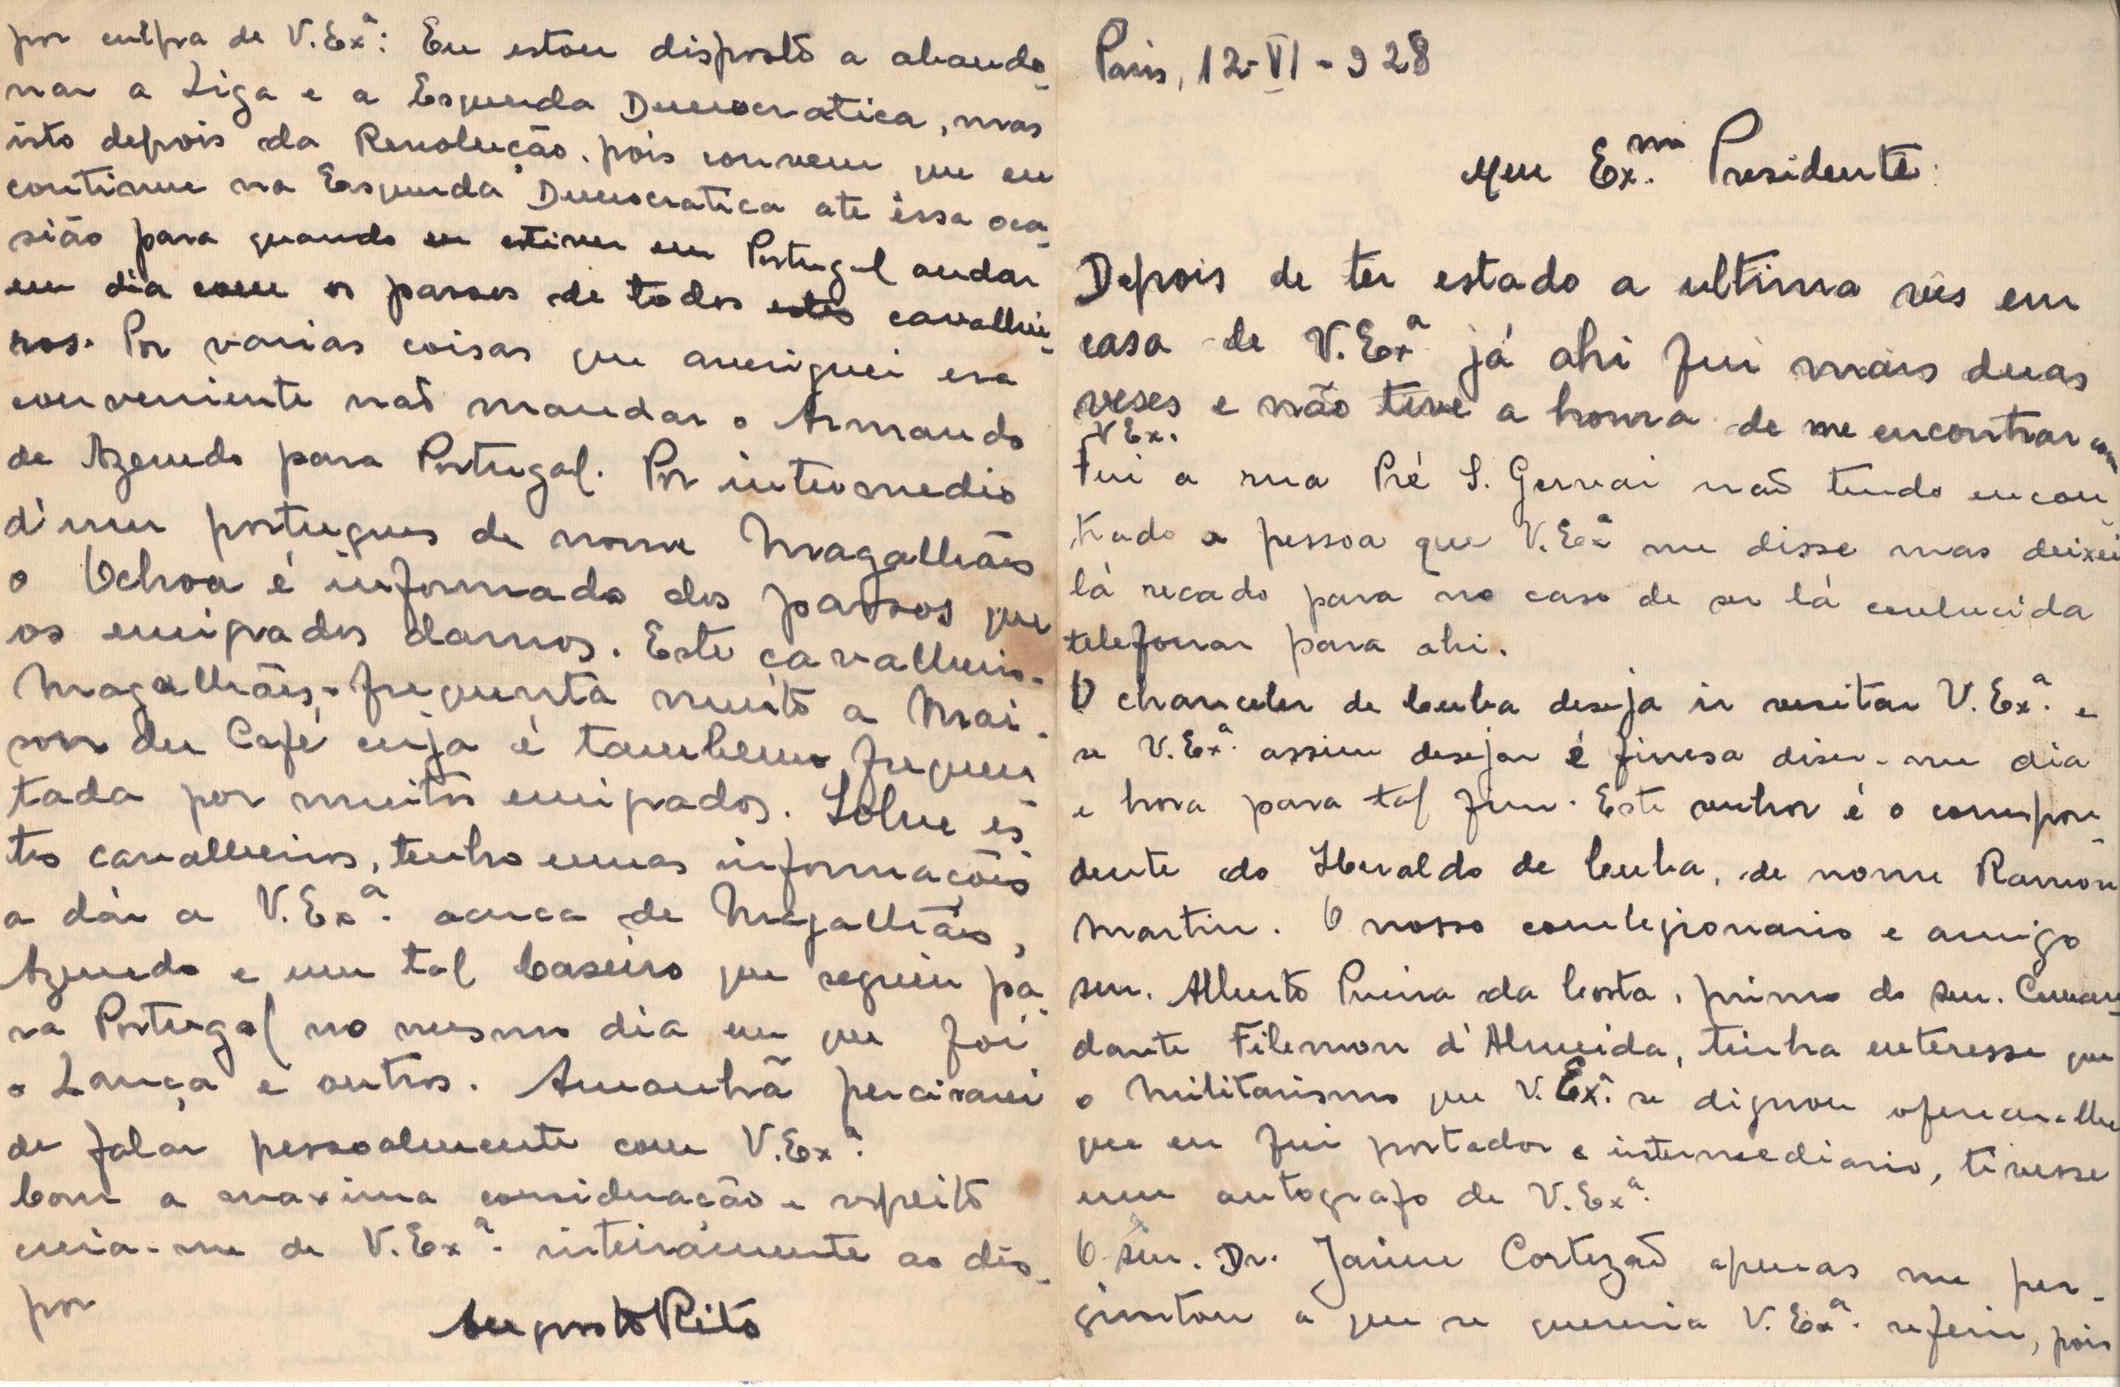 Paris, 12-VI-928
Meu Ex.mo Presidente:
Depois de ter estado a ultima vês em
casa de V.Exª já ahi fui mais duas
veses e não tive a honra de me encontrar com
V Ex.
Fui a rua Pré S. Gervai naõ tendo encon
trado a pessoa que V.Exª me disse mas deixei
lá recado para no caso de ser lá conhecida
telefonar para ahi.
O chanceler de Cuba deseja ir visitar V.Exª. e
se V.Exª. assim desejar é finesa diser-me dia
e hora para tal fim. Este senhor é o correspon-
dente do Heraldo de Cuba, de nome Ramon
Martin. O nosso correlegionario e amigo
snr. Alberto Pereira da Costa, primo do snr. Coman-
dante Filemon d'Almeida, tinha enteresse que
o Militarismo que V.Exª. se dignou oferecer-lhe
que eu fui portador e intermediario, tivesse
um autografo de V.Exª.
O snr. Dr. Jaime Cortezaõ apenas me per-
guntou a que se queria V.Exª. referir, pois
por culpa de V.Exª: Eu estou disposto a abando-
nar a Liga e a Esquerda Democratica, mas
isto depois da Revolução, pois convem que eu
continue na Easquerda Democratica até éssa oca-
sião para quando eu estiver em Portugal andar
em dia com os passos de todos estes cavalhei-
ros. Por varias coisas que averiguei era
conveniente naõ mandar o Armando
de Azevedo para Portugal. Por intermedio
d'um portugues de nome Magalhães
o Ochoa é informado dos passos que
os emigrados damos. Este cavalheiro-
Magalhães- frequenta muito a Mai-
son du Café cuja é tambem frequen
tada por muitos emigrados. Sobre és
tes cavalheiros, tenho umas informações
a dár a V.Exª. acerca de Magalhães,
Azevedo e um tal Caseiro que seguiu pa-
ra Portugal no mesmo dia em que foi
o Lança e outros. Amanhã percisarei
de falar pessoalmente com V.Exª.
Com a maxima consideração e respeito
creia-me de V.Exª. inteirámente ao dis-
por
Augosto Rito